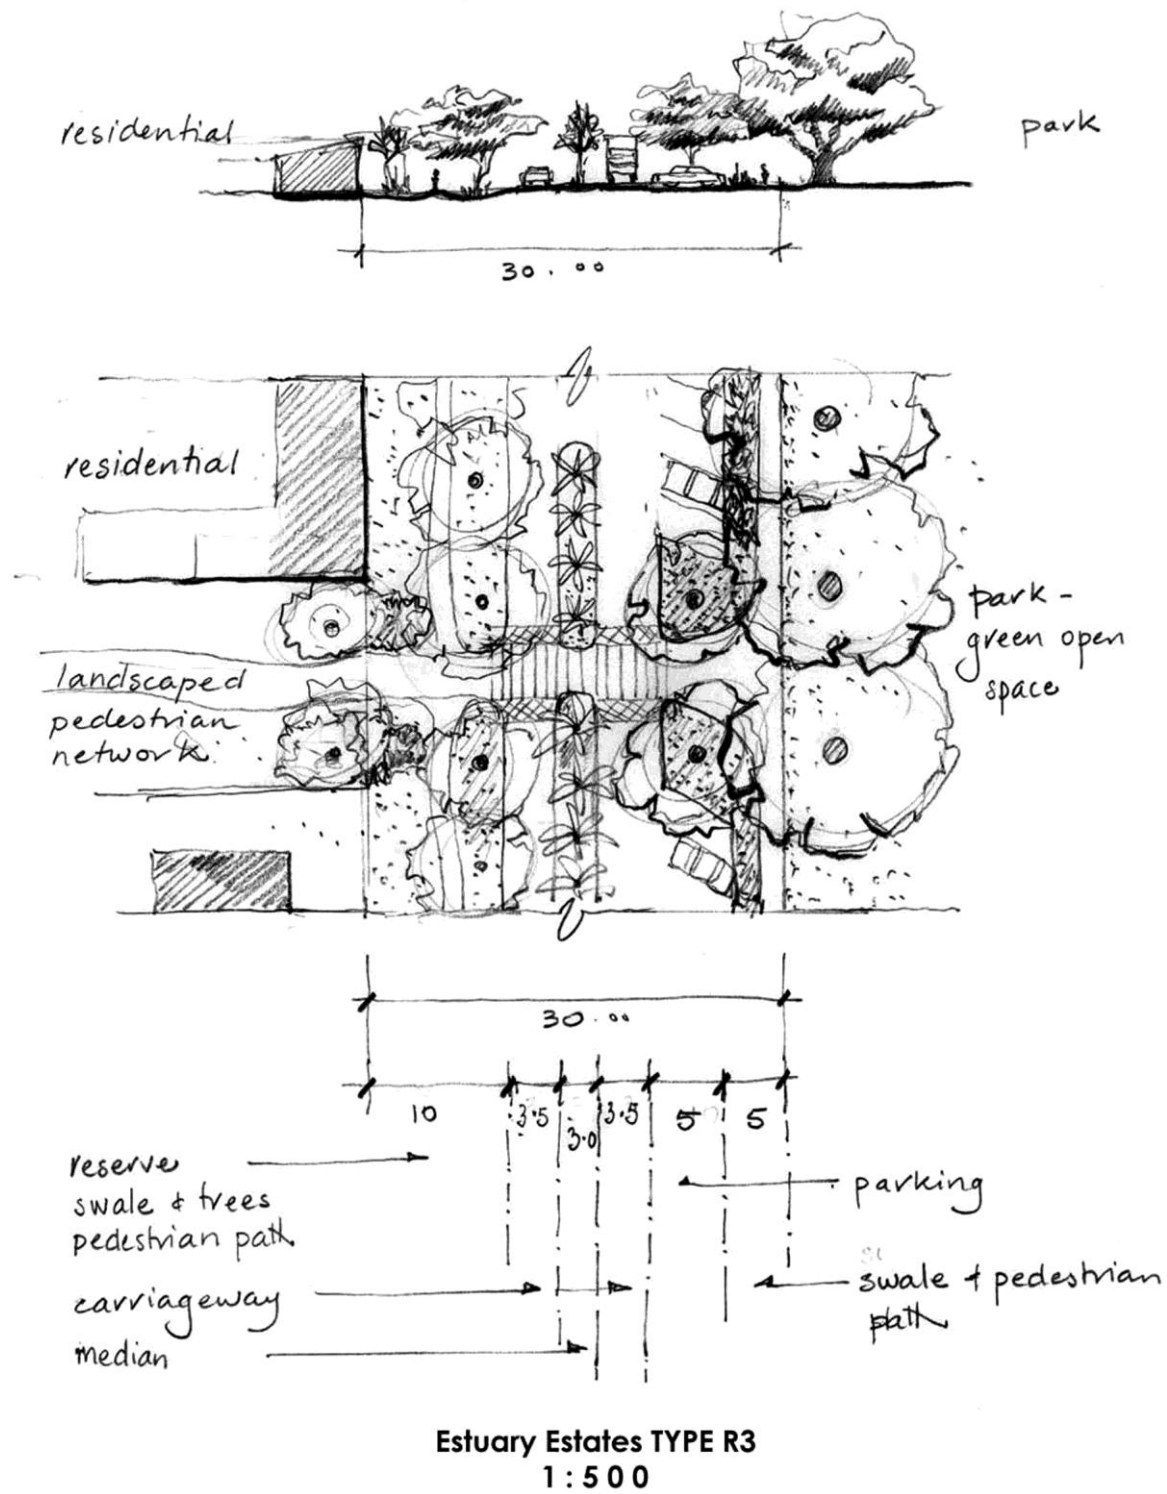 residential
park
30.00
residential
landscaped
pedestrian
network
park -
green open
space
30.00
10
3.5
3.0
3.5
5
5
reserve
swale & trees
pedestrian path
parking
carriageway
swale & pedestrian
path
median
Estuary Estates TYPE R3
1:500